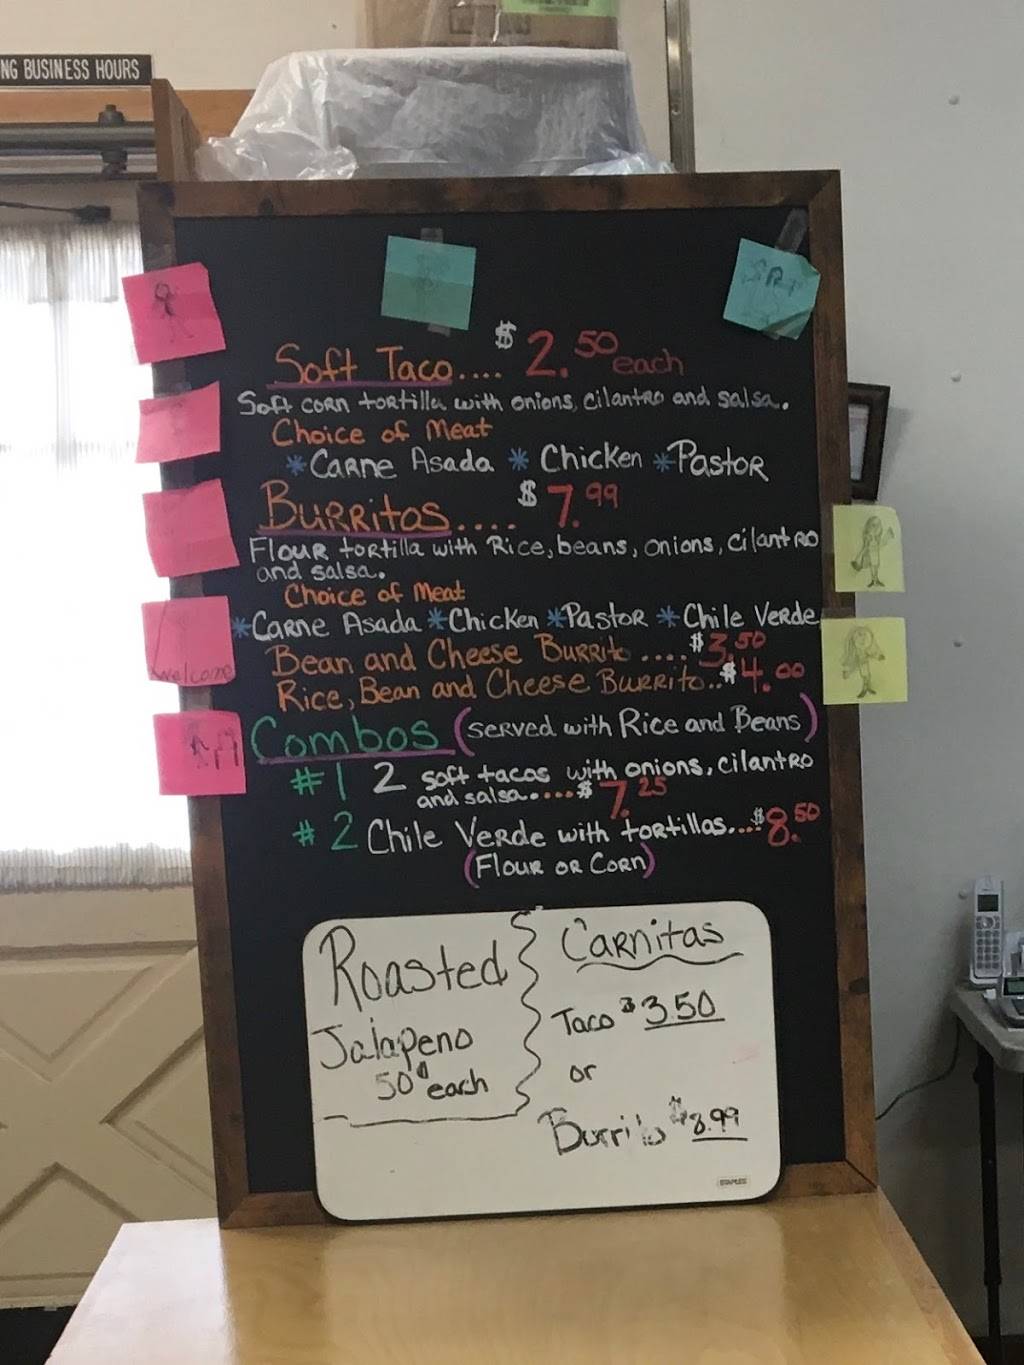 NG BUSINESS HOURS
Soft Taco.... $2.50 each
Soft corn tortilla with onions, cilantro and salsa.
Choice of Meat
*Carne Asada *Chicken *Pastor
Burritos.... $7.99
Flour tortilla with Rice, beans, onions, cilantro
and salsa.
Choice of Meat
*Carne Asada *Chicken *Pastor *Chile Verde
Bean and Cheese Burrito....$3.50
Rice, Bean and Cheese Burrito..$4.00
welcome
Combos (served with Rice and Beans)
#1 2 soft tacos with onions, cilantro
and salsa.....$7.25
#2 Chile Verde with tortillas....$8.50
(Flour or Corn)
Roasted
Jalapeno
50¢ each
Carnitas
Taco $3.50
or
Burrito $8.99
STAPLES